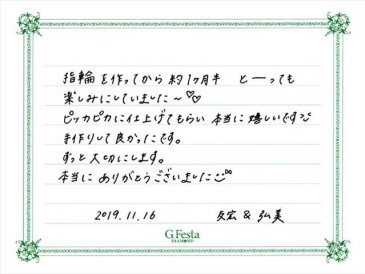 指輪を作ってから約1ヶ月半 とーっても
楽しみにしていました〜♡♡
ピッカピカに仕上げてもらい本当に嬉しいです
手作りして良かったです。
ずっと大切にします。
本当にありがとうございました♡
2019.11.16 友宏 & 弘美
G.Festa
DIAMOND